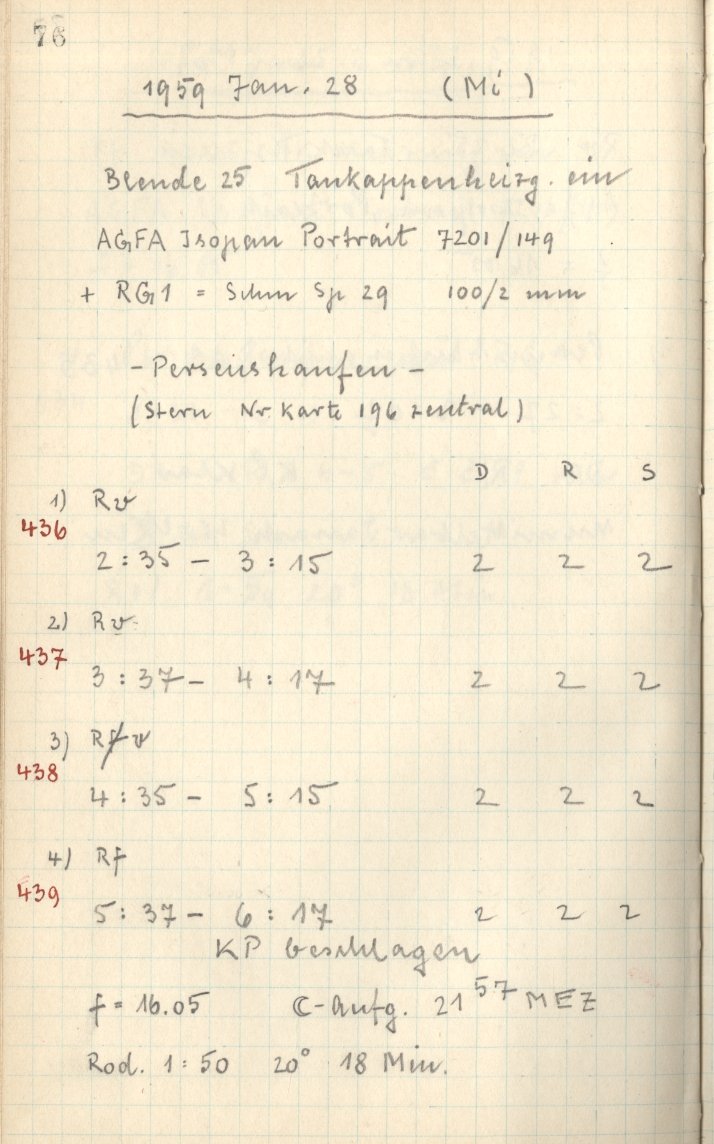 76
1959 Jan. 28 (Mi)
Blende 25 Taukappenheizg. ein
AGFA Isopan Portrait 7201/149
+ RG1 = Schm Sp 29 100/2 mm
- Perseushaufen -
(Stern Nr. Karte 196 zentral)
D R S
1) Rv
436
2:35 - 3:15 2 2 2
2) Rv
437
3:37 - 4:17 2 2 2
3) Rf v
438
4:35 - 5:15 2 2 2
4) Rf
439
5:37 - 6:17 2 2 2
KP beschlagen
f = 16.05 ☾-Aufg. 21 57 MEZ
Rod. 1:50 20° 18 Min.